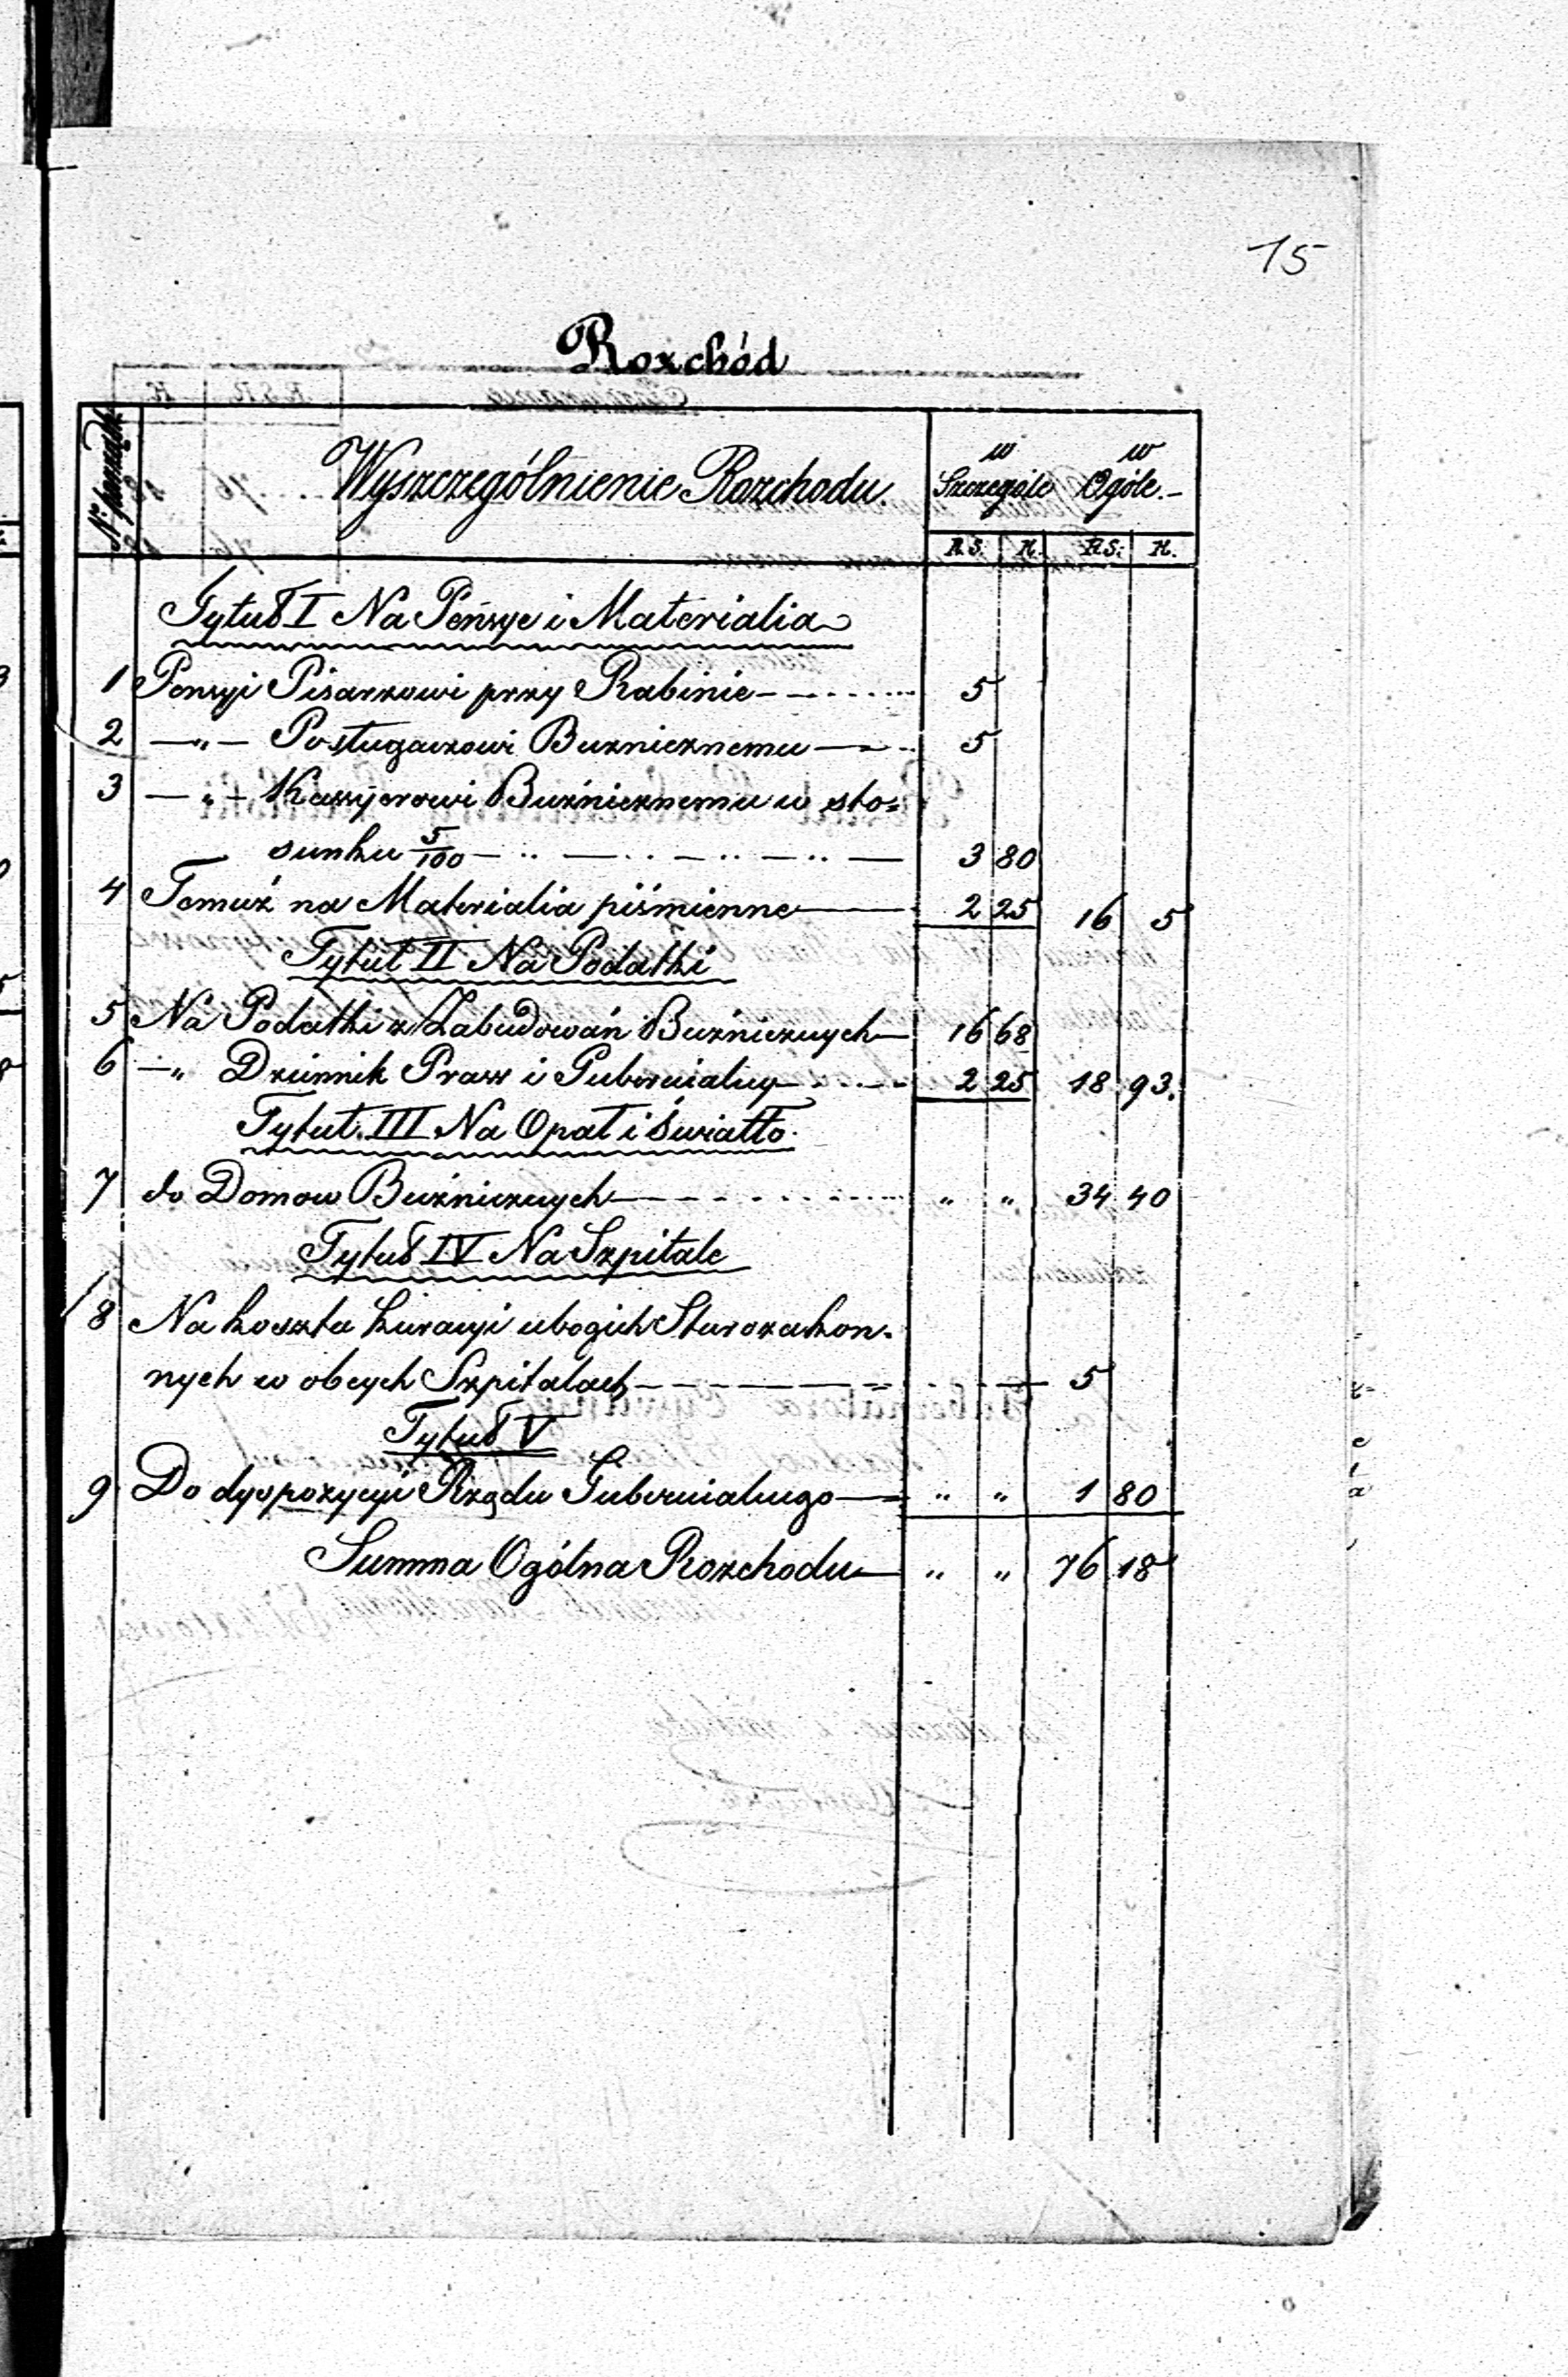 15
Rozchód
Nr porządk.
Wyszczególnienie Rozchodu.
w Szczególe
w Ogóle.-
R.S. K. R.S. K.
Tytuł I Na Peńsye i Materialia
1 Pensyi Pisarzowi przy Rabinie 5
2 —„— Posługaczowi Buznicznemu 5
3 —„— Kassyerowi Buźnicznemu w sto=
sunku 5/100 3 80
4 Temuż na Materialia piśmienne 2 25 16 5
Tytuł II Na Podatki
5 Na Podatki z Zabudowań Buźnicznych 16 68
6 —„ Dziennik Praw i Gubernialny 2 25 18 93.
Tytuł III Na Opał i światło.
7 do Domow Buźnicznych „ „ 34 40
Tytuł IV Na Szpitale
8 Na koszta kuracyi ubogich Starozakon-
nych w obcych Szpitalach 5
Tytuł V
9 Do dyspozycyi Rządu Gubernialnego „ „ 1 80
Summa Ogólna Rozchodu „ „ 76 18